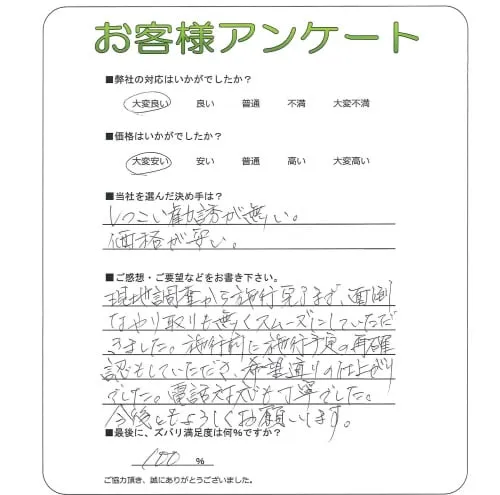 お客様アンケート
■弊社の対応はいかがでしたか？
大変良い 良い 普通 不満 大変不満
■価格はいかがでしたか？
大変安い 安い 普通 高い 大変高い
■当社を選んだ決め手は？
しつこい勧誘が無い。
価格が安い。
■ご感想・ご要望などをお書き下さい。
現地調査から施行完了まで、面倒
なやり取りも無くスムーズにしていただ
きました。施行前に施行予定の再確
認もしていただき、希望通りの仕上がり
でした。電話対応も丁寧でした。
今後ともよろしくお願いします。
■最後に、ズバリ満足度は何%ですか？
100 %
ご協力頂き、誠にありがとうございました。